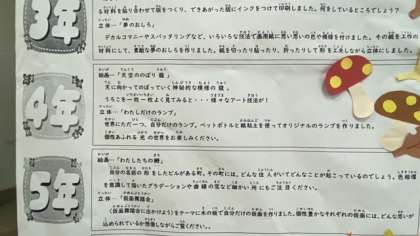 3年
る材料を貼り合わせて版をつくり、できあがった版にインクをつけて印刷しました。何をしているところでしょう？
立体…「夢のおしろ」
デカルコマニーやスパッタリングなど、いろいろな技法で画用紙に思い思いの色や模様を付けました。その紙を工作の
材料にして、素敵な夢のおしろを作りました。紙を切ったり貼ったり、折ったりして形を工夫しながら立体にしました。
4年
絵画…「天空のぼり龍」
天に向かってのぼっていく神秘的な模様の龍。
うろこを一枚一枚よく見てみると・・・様々なアート技法が！
立体…「わたしだけのランプ」
世界にただ一つ、自分だけのランプ。ペットボトルと紙粘土を使ってオリジナルのランプを作りました。
個性あふれる光の世界をお楽しみください。
5年
絵画…「わたしたちの町」
自分の名前の形をしたビルがある町。その町には、どんな住人がいてどんなことが起こっているのでしょう。色相環
を意識して描いたグラデーションや曲線の窓など細かい所にもご注目ください。
立体…「仮面舞踏会」
（仮面舞踏会に出かけよう）をテーマに木の板で自分だけの仮面を作りました。個性豊かなそれぞれの仮面には、どんな思いが
込められているか想像しながらご覧ください。